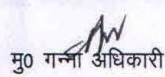 मु० गन्ना अधिकारी